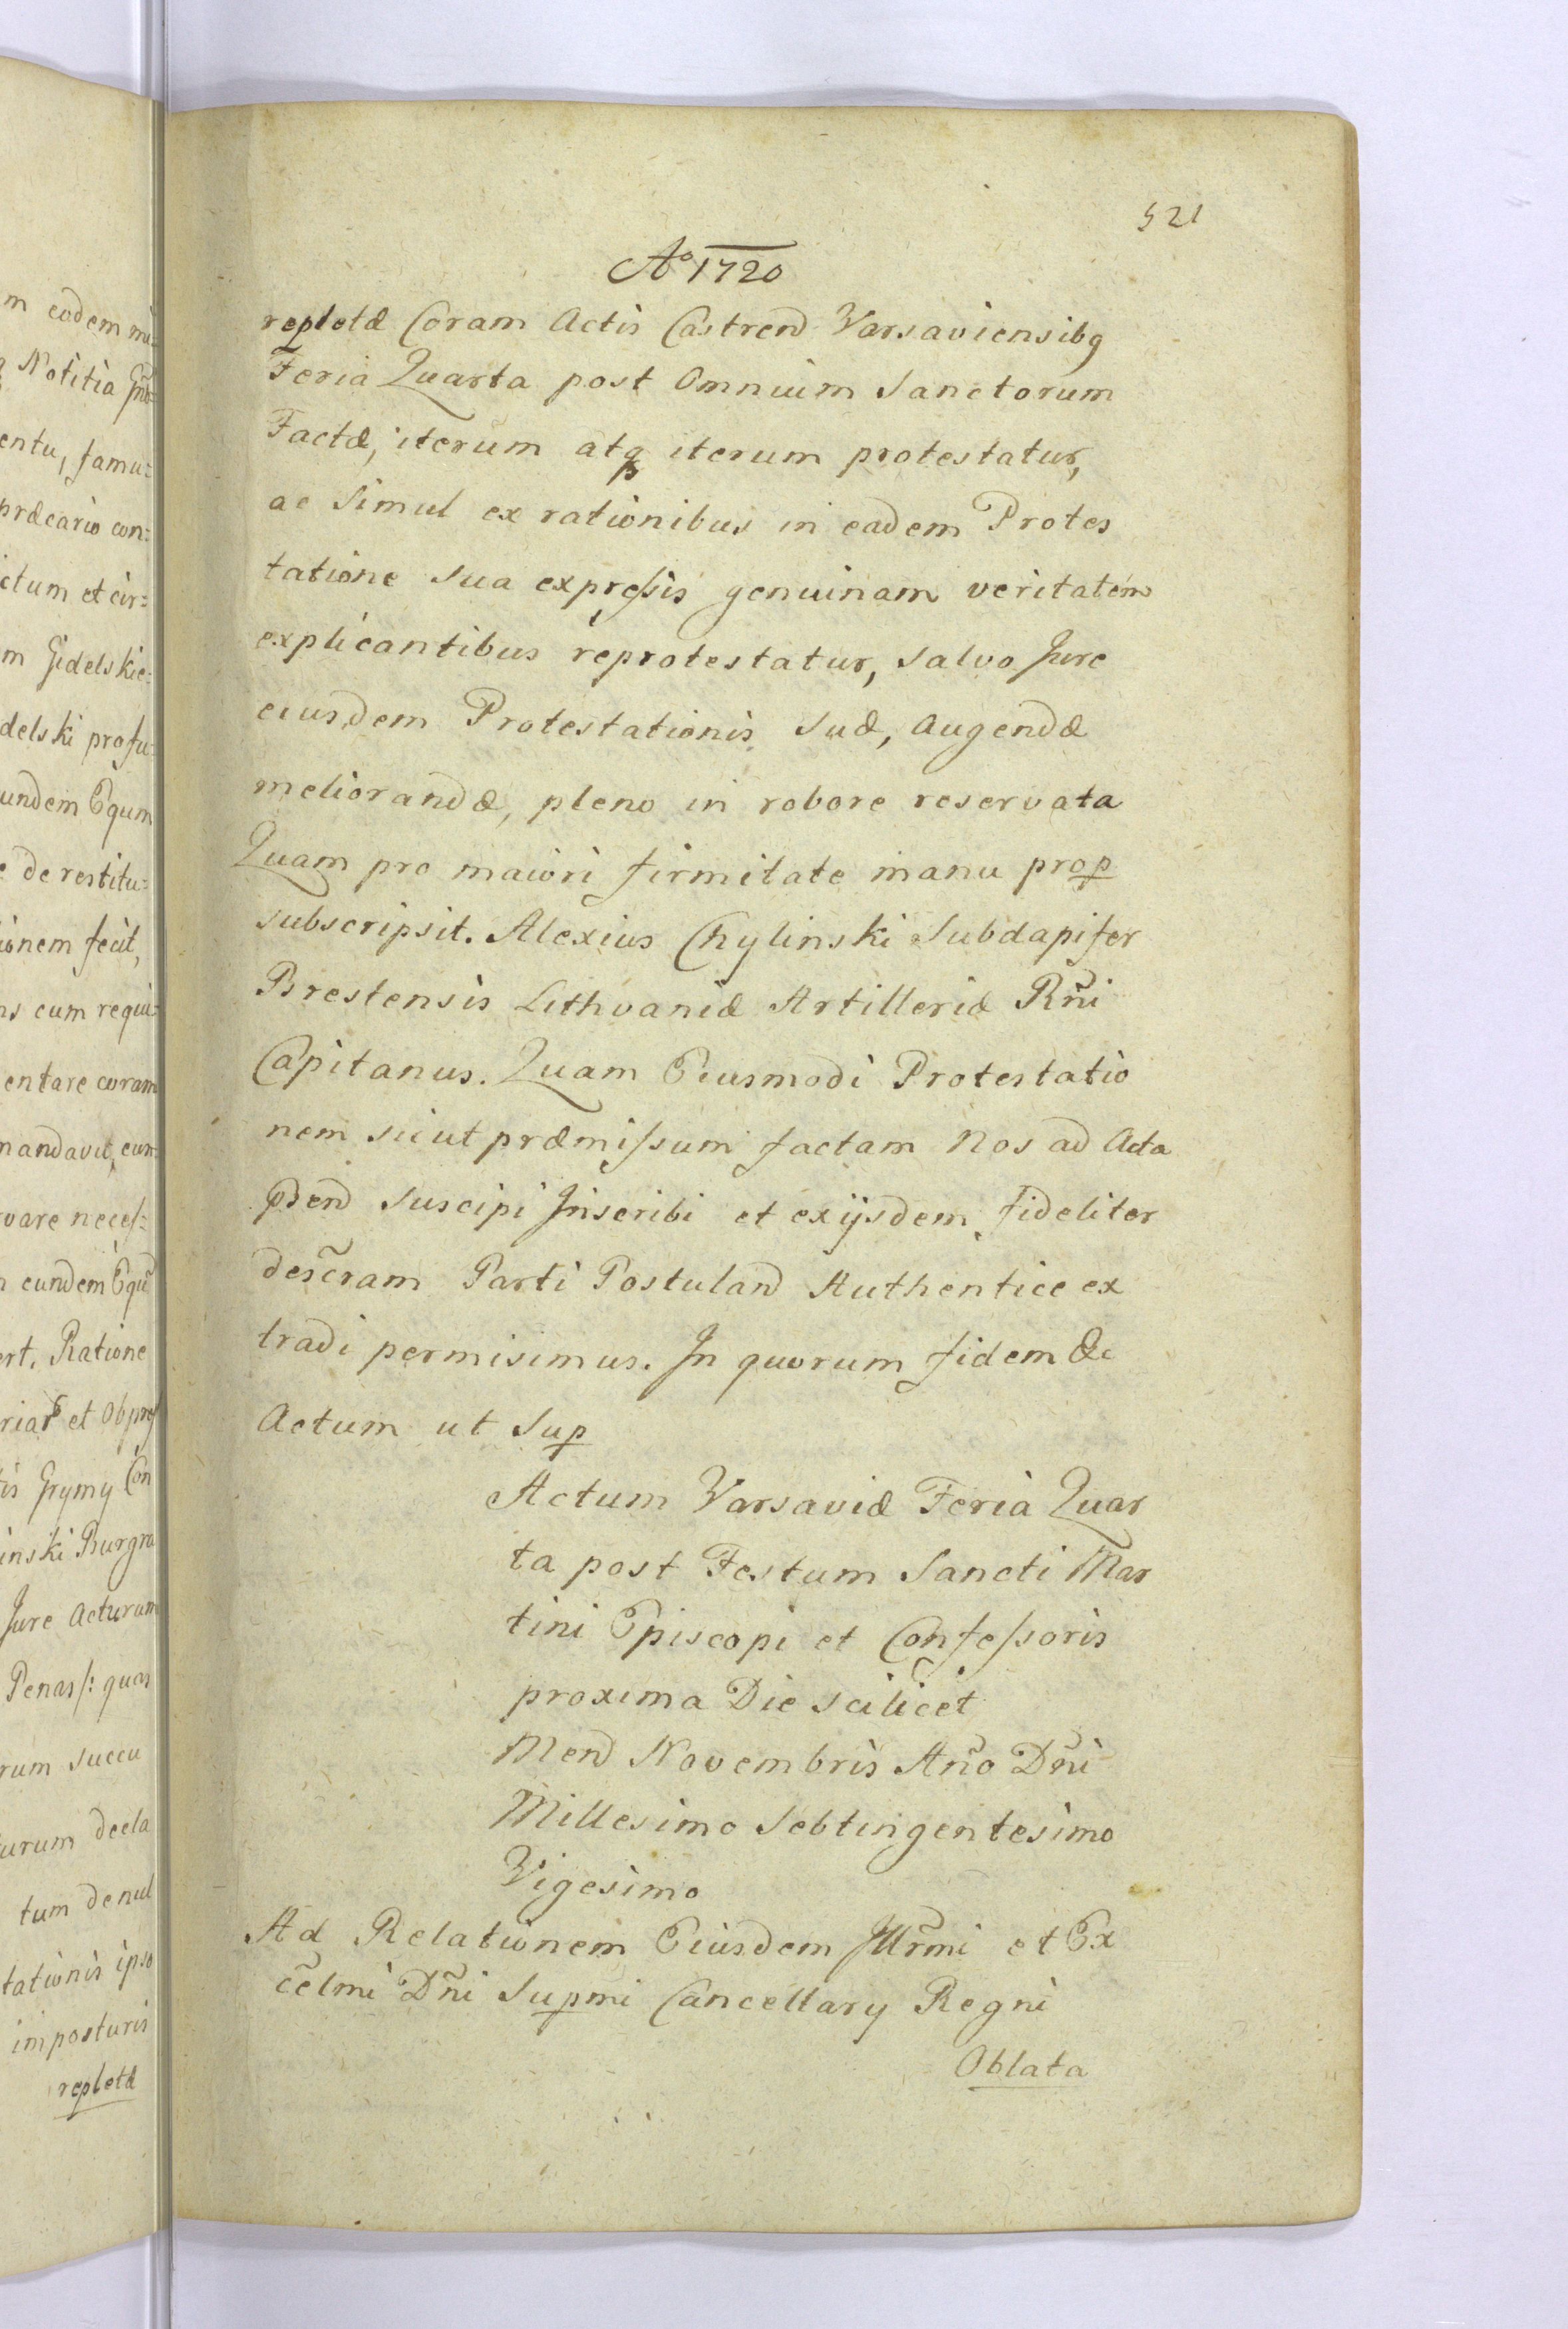 m eodem mi=
Notitia
entu, famu=
præcario con=
ictum et cir=
m Gidelskie=
delski profu=
undem Equm
e de restitu=
ionem fecit,
ns cum requi=
entare coram
mandavit, eun=
vare neceſ=
n eundem Eqũ
ert. Ratione
et Obpreſ
tis Grymy Con
inski Burgra
Jure Acturum
Penas /: quas
rum succu
urum decla
tum de nul
tationis ipso
imposturis
repletæ
521
Aº 1720
repletæ Coram Actis Castren̄ Varsaviensibq
Feria Quarta post Omnium Sanctorum
Factæ, iterum atq iterum protestatur,
ac Simul ex rationibus in eadem Protes
tatione sua expreſsis genuinam veritatem
explicantibus reprotestatur, salvo Jure
eiusdem Protestationis suæ, augendæ
meliorandæ, pleno in robore reservata
Quam pro maiori firmitate manu prop
subscripsit. Alexius Chylinski Subdapifer
Brestensis Lithvaniæ Artilleriæ Rñi
Capitanus. Quam Eiusmodi Protestatio
nem sicut præmiſsum factam Nos ad Acta
pñ̄d Suscipi Inscribi et exijsdem fideliter
des̃cram Parti Postulan̄ Authentice ex
tradi permisimus. In quorum fidem &c
Actum ut Sup
Actum Varsaviæ Feria Quar
ta post Festum Sancti Mar
tini Episcopi et Confeſsoris
proxima Die scilicet
Men̄ Novembris Añο Dñi
Millesimo Sebtingentesimo
Vigesimo
Ad Relationem Eiusdem Jllr̃mi et Ex
cel̃mi Dñi Supmi Cancellary Regni
Oblata